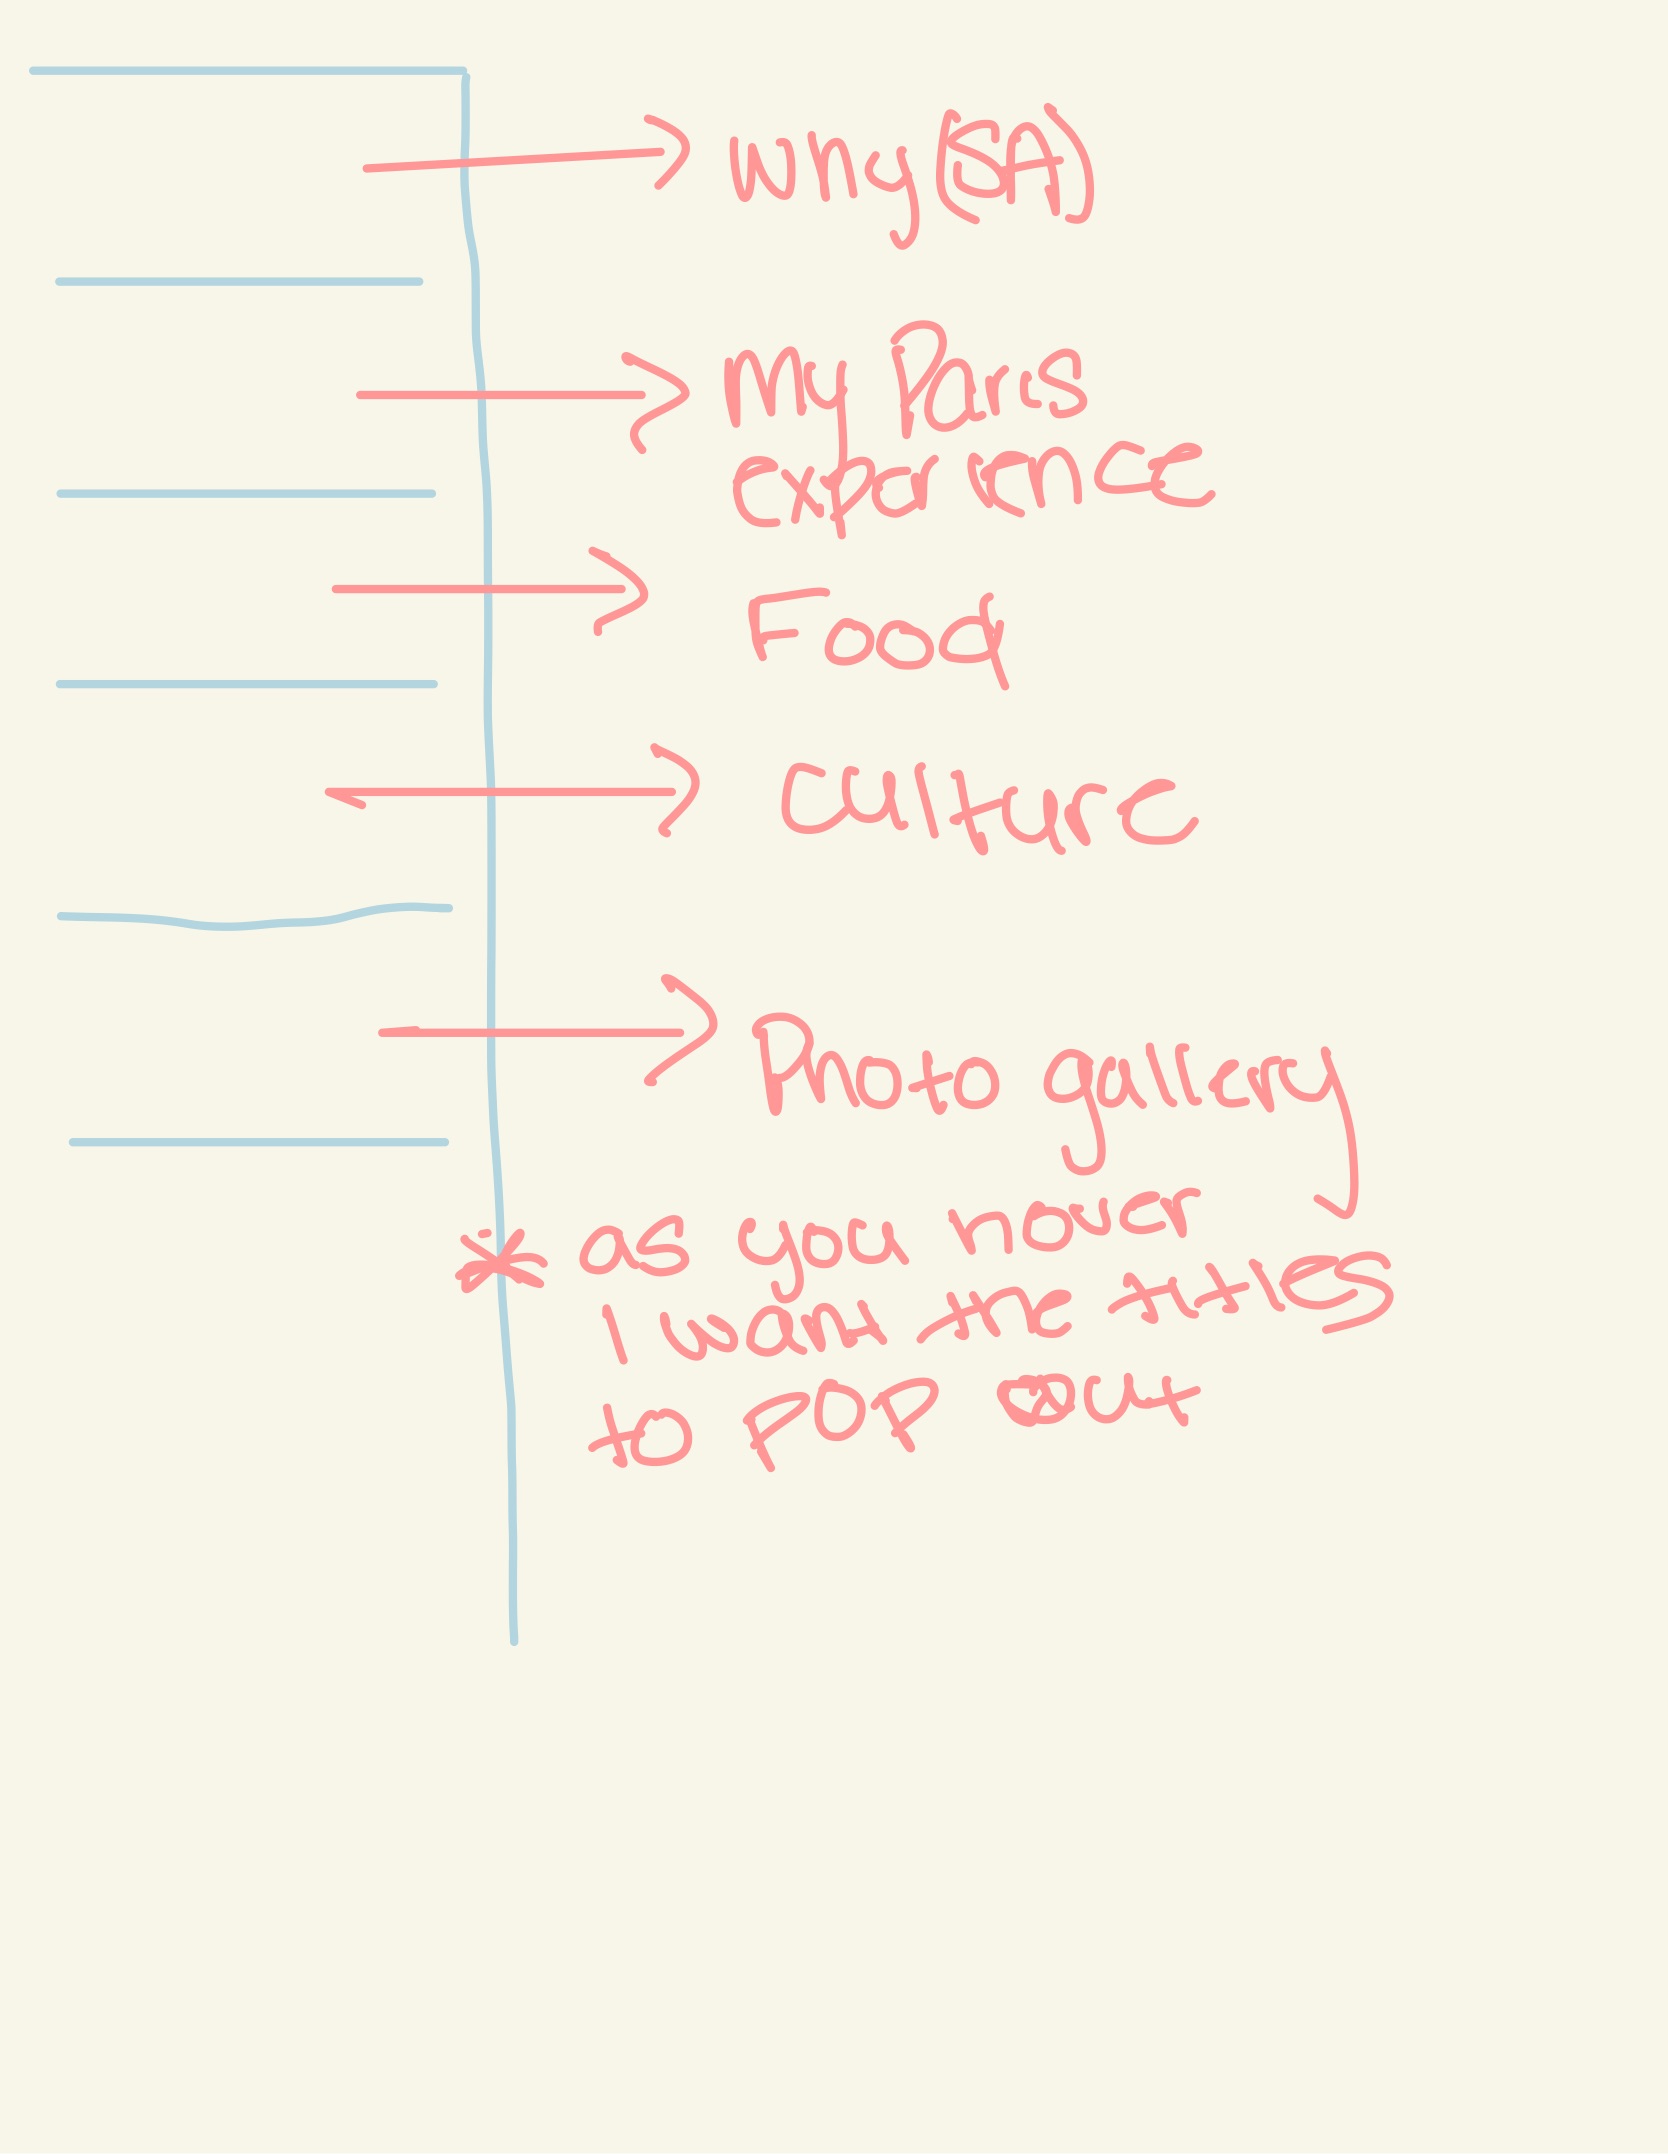 Why (SA)
My Paris
experience
Food
culture
Photo gallery
* as you hover
I want the titles
to POP out